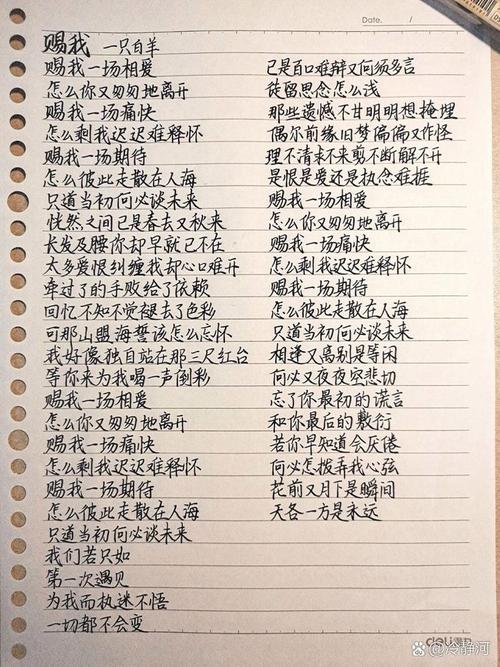 Date. /
赐我 一只白羊
赐我一场相爱
怎么你又匆匆地离开
赐我一场痛快
怎么剩我迟迟难释怀
赐我一场期待
怎么彼此走散在人海
只道当初何必谈未来
恍然之间已是春去又秋来
长发及腰你却早就已不在
太多爱恨纠缠我却心口难开
牵过了的手败给了依赖
回忆不知不觉褪去了色彩
可那山盟海誓该怎么忘怀
我好像独自站在那三尺红台
等你来为我喝一声倒彩
赐我一场相爱
怎么你又匆匆地离开
赐我一场痛快
怎么剩我迟迟难释怀
赐我一场期待
怎么彼此走散在人海
只道当初何必谈未来
我们若只如
第一次遇见
为我而执迷不悟
一切都不会变
已是百口难辩又何须多言
徒留思念怎么浅
那些遗憾不甘明明想掩埋
偶尔前缘旧梦偏偏又作怪
理不清求不来剪不断解不开
是恨是爱还是执念难捱
赐我一场相爱
怎么你又匆匆地离开
赐我一场痛快
怎么剩我迟迟难释怀
赐我一场期待
怎么彼此走散在人海
只道当初何必谈未来
相逢又离别是等闲
何必又夜夜空悲切
忘了你最初的谎言
和你最后的敷衍
若你早知道会厌倦
何必怎拨弄我心弦
花前又月下是瞬间
天各一方是永远
deli得力
冷静河